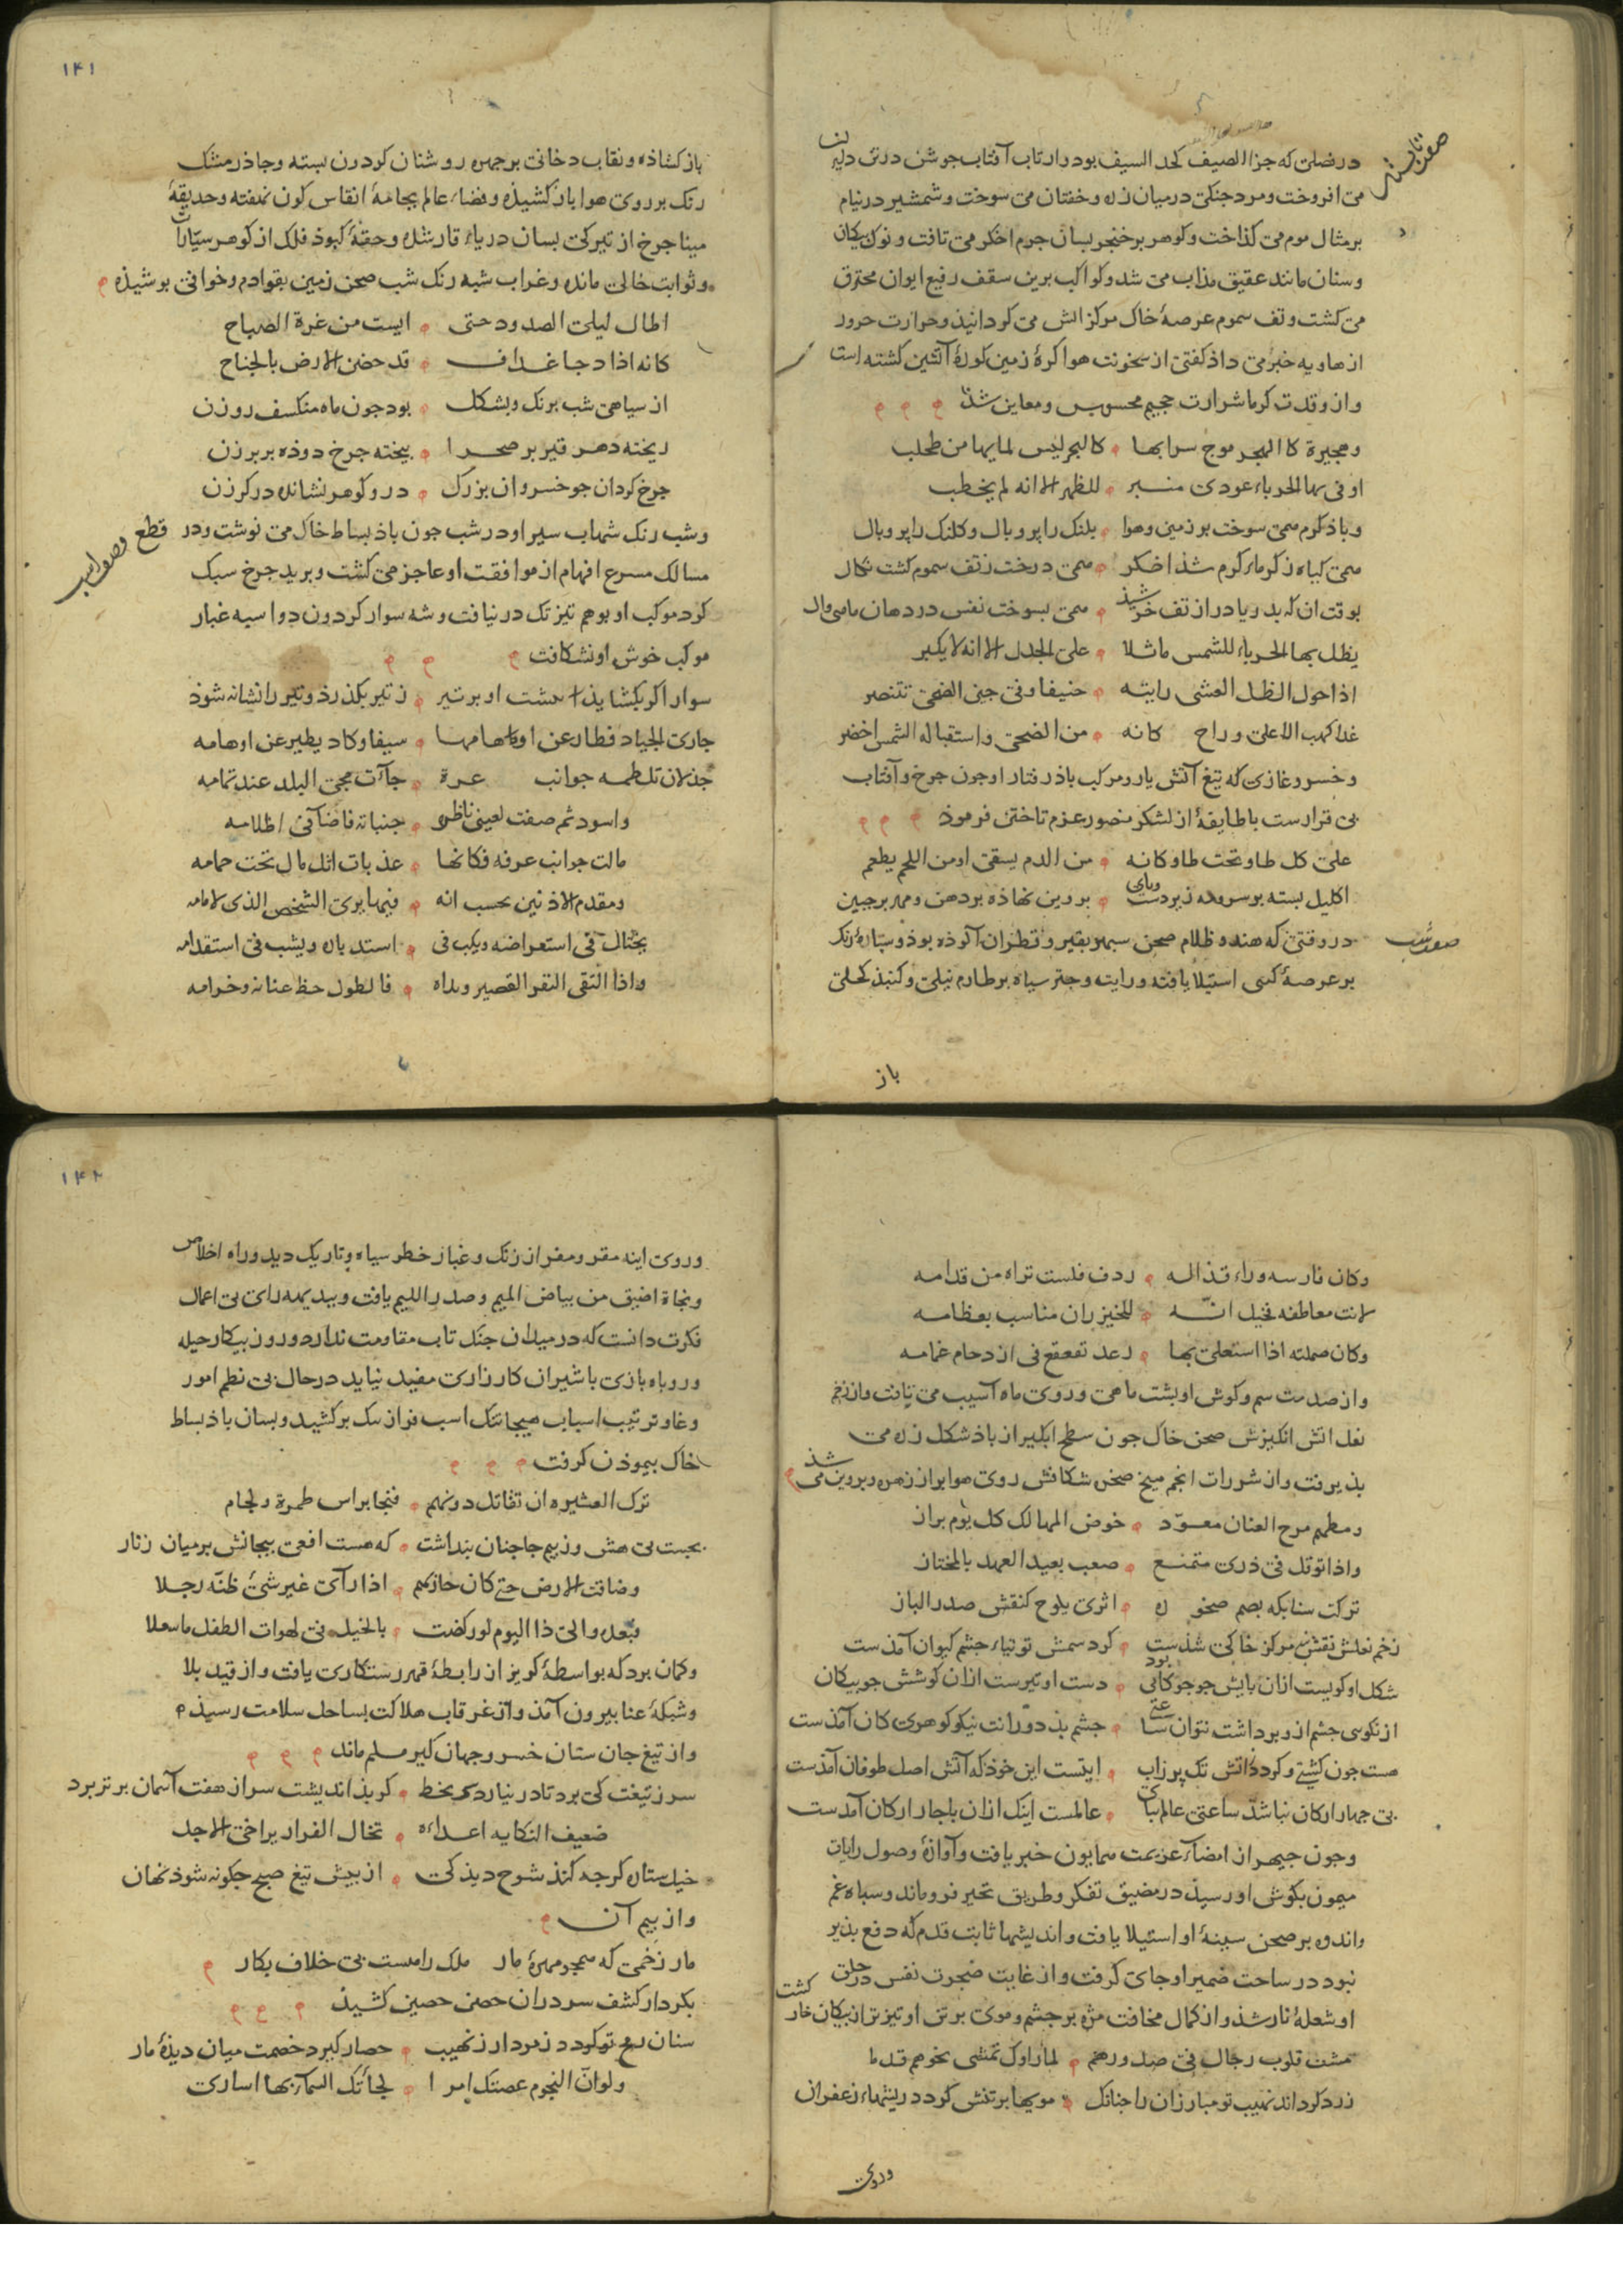 صفت تابستان
در فصلی که جزا الصیف کحد السیف بود از تاب آفتاب جوشن در تن دلیران
می افروخت و مرد جنکی در میان زره و خفتان می سوخت و شمشیر در نیام
بر مثال موم می کذاخت و کوهر بر خنجر بسان جرم اخکر می تافت و نوک پیکان
و سنان مانند عقیق مذاب می شد و کواکب برین سقف رفیع ایوان محترق
می کشت و تف سموم عرصهٔ خاک مرکز اتش می کردانیذ و حرارت حرور
از هاویه خبر می داذ کفتی از سخونت هوا کرهٔ زمین کورهٔ آتشین کشته است
و از وقدت کرما شرارت جحیم محسوس و معاین شذ
وهجیرة کالهجر موج سرابها کالبحر لیس لمایها من طحلب
اوفی بها الحرباء عودی منبر للظهر الا انه لم یخطب
و باذ کرم همی سوخت بر زمین و هوا پلنک را پر و بال و کلنک را پر و بال
همی کیاه ز کرماء کرم شذ اخکر همی درخت ز تف سموم کشت نکال
بوقت ان که بدریا در از تف خرشیذ همی بسوخت نفس در دهان ماهی وال
یظل بها الحرباء للشمس ماثلا علی الجدل الا انه لا یکبر
اذا حول الظل العشی رایته حنیفا وفی حین الضحی تتنصر
غدا کهب الاعلی وراح کانه من الضحی واستقباله الشمس اخضر
و خسرو غازی که تیغ آتش بار و مرکب باذ رفتار او چون چرخ و آفتاب
بی قرارست با طایفهٔ از لشکر منصور عزم تاختن فرموذ
علی کل طاو تحت طاو کانه من الدم یسقی او من اللحم یطعم
اکلیل بسته بر سر و مه زیر دست و پای پروین نهاذه بر دهن و مهر بر جبین
صفت شب
در وقتی که هندو ظلام صحن سپهر بقیر و قطران آلوذه بوذ و ستارهٔ زنک
بر عرصهٔ کیتی استیلا یافته و رایت و چتر سیاه بر طارم نیلی و کنبذ کحلی
باز
۱۴۱
باز کشاذه و نقاب دخانی بر چهره روشنان کردون بسته و چاذر مشک
رنک بر روی هوا باز کشیذه و فضاء عالم بجامهٔ انقاس کون نهفته و حدیقهٔ
مینا چرخ از تیرکی بسان دریاء قار شذه و حقهٔ کبوذ فلک از کوهر سیّارات
و ثوابت خالی مانده و غراب شبه رنک شب صحن زمین بقوادم و خوافی بوشیذه
اطال لیلی الصدود حتی ایست من غرة الصباح
کانه اذا دجا غداف قد حضن الارض بالجناح
از سیاهی شب برنک و بشکل بود چون ماه منکسف روزن
ریخته دهر قیر بر صحرا بیخته چرخ دوذه بر برزن
چرخ کردان چو خسروان بزرک در و کوهر نشانده در کرزن
و شب رنک شهاب سیر او در شب چون باذ بساط خاک می نوشت و در قطع
وصف اسب
مسالک مسرع افهام از موافقت او عاجز می کشت و برید چرخ سبک
کرد موکب او بوهم تیزتک در نیافت و شه سوار کردون دو اسبه غبار
موکب خوش او نشکافت
سوار اکر بکشاید از شست او بر تیر ز تیر بکذرد و تیر را نشانه شوذ
جاری الجیاد فطار عن اوهامها سیفا وکاد یطیر عن اوهامه
جذلان تلطمه جوانب غرة جآت مجی البدر عند تمامه
واسود ثم صفت لعینی ناظر جنباته فاضآ فی اظلامه
مالت جوانب عرفه فکانها عذبات اثل مال تحت حمامه
ومقدم الاذنین یحسب انه فیهما یری الشخص الذی لامامه
یختال فی استعراضه ویکب فی استدباره ویشب فی استقدامه
واذا التقی الثفر القصیر وراه فالطول حظ عنانه وحزامه
وکان فارسه وراء قذاله ردف فلست تراه من قدامه
لانت معاطفه فخیل انّه للخیزران مناسب بعظامه
وکان صهلته اذا استعلی بها رعد تقعقع فی ازدحام غمامه
و از صدمت سم و کوش او بشت ماهی و روی ماه آسیب می یافت و از زخم
نعل اتش انکیزش صحن خاک چون سطح ابکیر از باذ شکل زره می
بذیرفت و از شررات انجم میخ صخره شکافش روی هوا بر از زهره و پروین می شذ
ومطهم مرح العنان معوّد خوض المهالک کل یوم براز
واذا توقل فی ذری متمنع صعب بعید العهد بالمجتاز
ترکت سنابکه بصم صخوره اثری یلوح کنقش صدر الباز
زخم نعلش نقش مرکز خاکی شذست کرد سمش توتیاء چشم کیوان آمذست
شکل او کویست ازان پایش چو چوکانی بود دست او تیرست ازان کوشش چو بیکان
از نکوسی چشم ازو برداشت نتوان ساعتی چشم بذ دور انت نیکو کوهری کان آمذست
هست چون کشتی و کردذ اتش تک پر زاب اینست این خوذ که آتش اصل طوفان آمذست
بی چهار ارکان نباشد ساعتی عالم بپای عالمست اینک ازان با چار ارکان آمذست
و چون جیهر از امضآء عزیمت همایون خبر یافت و آوازهٔ وصول رایات
میمون بکوش او رسیذ در مضیق تفکر و طریق تحیر فرو ماند و سپاه غم
و اندوه بر صحن سینهٔ او استیلا یافت و اندیشها ثابت قدم که دفع بذیر
نبود در ساحت ضمیر او جای کرفت و از غایت ضجرت نفس در حلق
او شعلهٔ نار شذ و از کمال مخافت مژه بر چشم و موی بر تن او تیزتر از بیکان خار کشت
مشت قلوب رجال فی صدورهم لما راوک تمشی نحوهم قدما
زرد کرداند نهیب تو مبارزان را چنانک مویها بر تنش کردد ریشهاء زعفران
وروی
۱۴۲
و روی اینه مقر و مفر از زنک و غبار خطر سیاه و تاریک دید و راه اخلاص
و نجاة اضیق من بیاض المیم و صدر اللیم یافت و ببدیهه رای بی اعمال
فکرت دانست که در میدان جنک تاب مقاومت ندارد و روز بیکار حیله
و روباه بازی با شیران کارزاری مفید نیاید در حال بی نظم امور
و غاو ترتیب اسباب هیجا تنک اسب فراز تنک بر کشید و بسان باذ بساط
خاک بیموذن کرفت
ترک العشیره ان تقاتل دونهم فنجا براس طمرة ولجام
بجست بی هش وز بیم جا چنان بنداشت که هست افعی بیجانش بر میان زنار
وضاقت الارض حتی کان هاربهم اذا رآی غیر شئ ظنّه رجلا
فبعده والی ذا الیوم لو رکضت بالخیل فی لهوات الطفل ما سعلا
و کمان برد که بواسطهٔ کریز از رابطهٔ قهر رستکاری یافت و از قید بلا
و شبکهٔ عنا بیرون آمذ و از غرقاب هلاکت بساحل سلامت رسیذ
و از تیغ جان ستان خسرو جهان کیر مسلم ماند
سر ز تیغت کی برد تا در نیارد بخط کر بذ اندیشت سر از هفت آسمان برتر برد
ضعیف النکایه اعداءه تخال الفرار یراخی الاجل
خیل ستاره کرچه کند شوخ دیذکی از بیش تیغ صبح چکونه شوذ نهان
و از بیم آن
مار زخمی که همچو مهرهٔ مار ملک را هست بی خلاف بکار
بکردار کشف سر در ان حصن حصین کشیذ
سنان رمح تو کردد زمرد ار ز نهیب حصار کیرد خصمت میان دیذهٔ مار
ولو انّ النجوم عصتک امرا لجآتک السمآء بها اساری